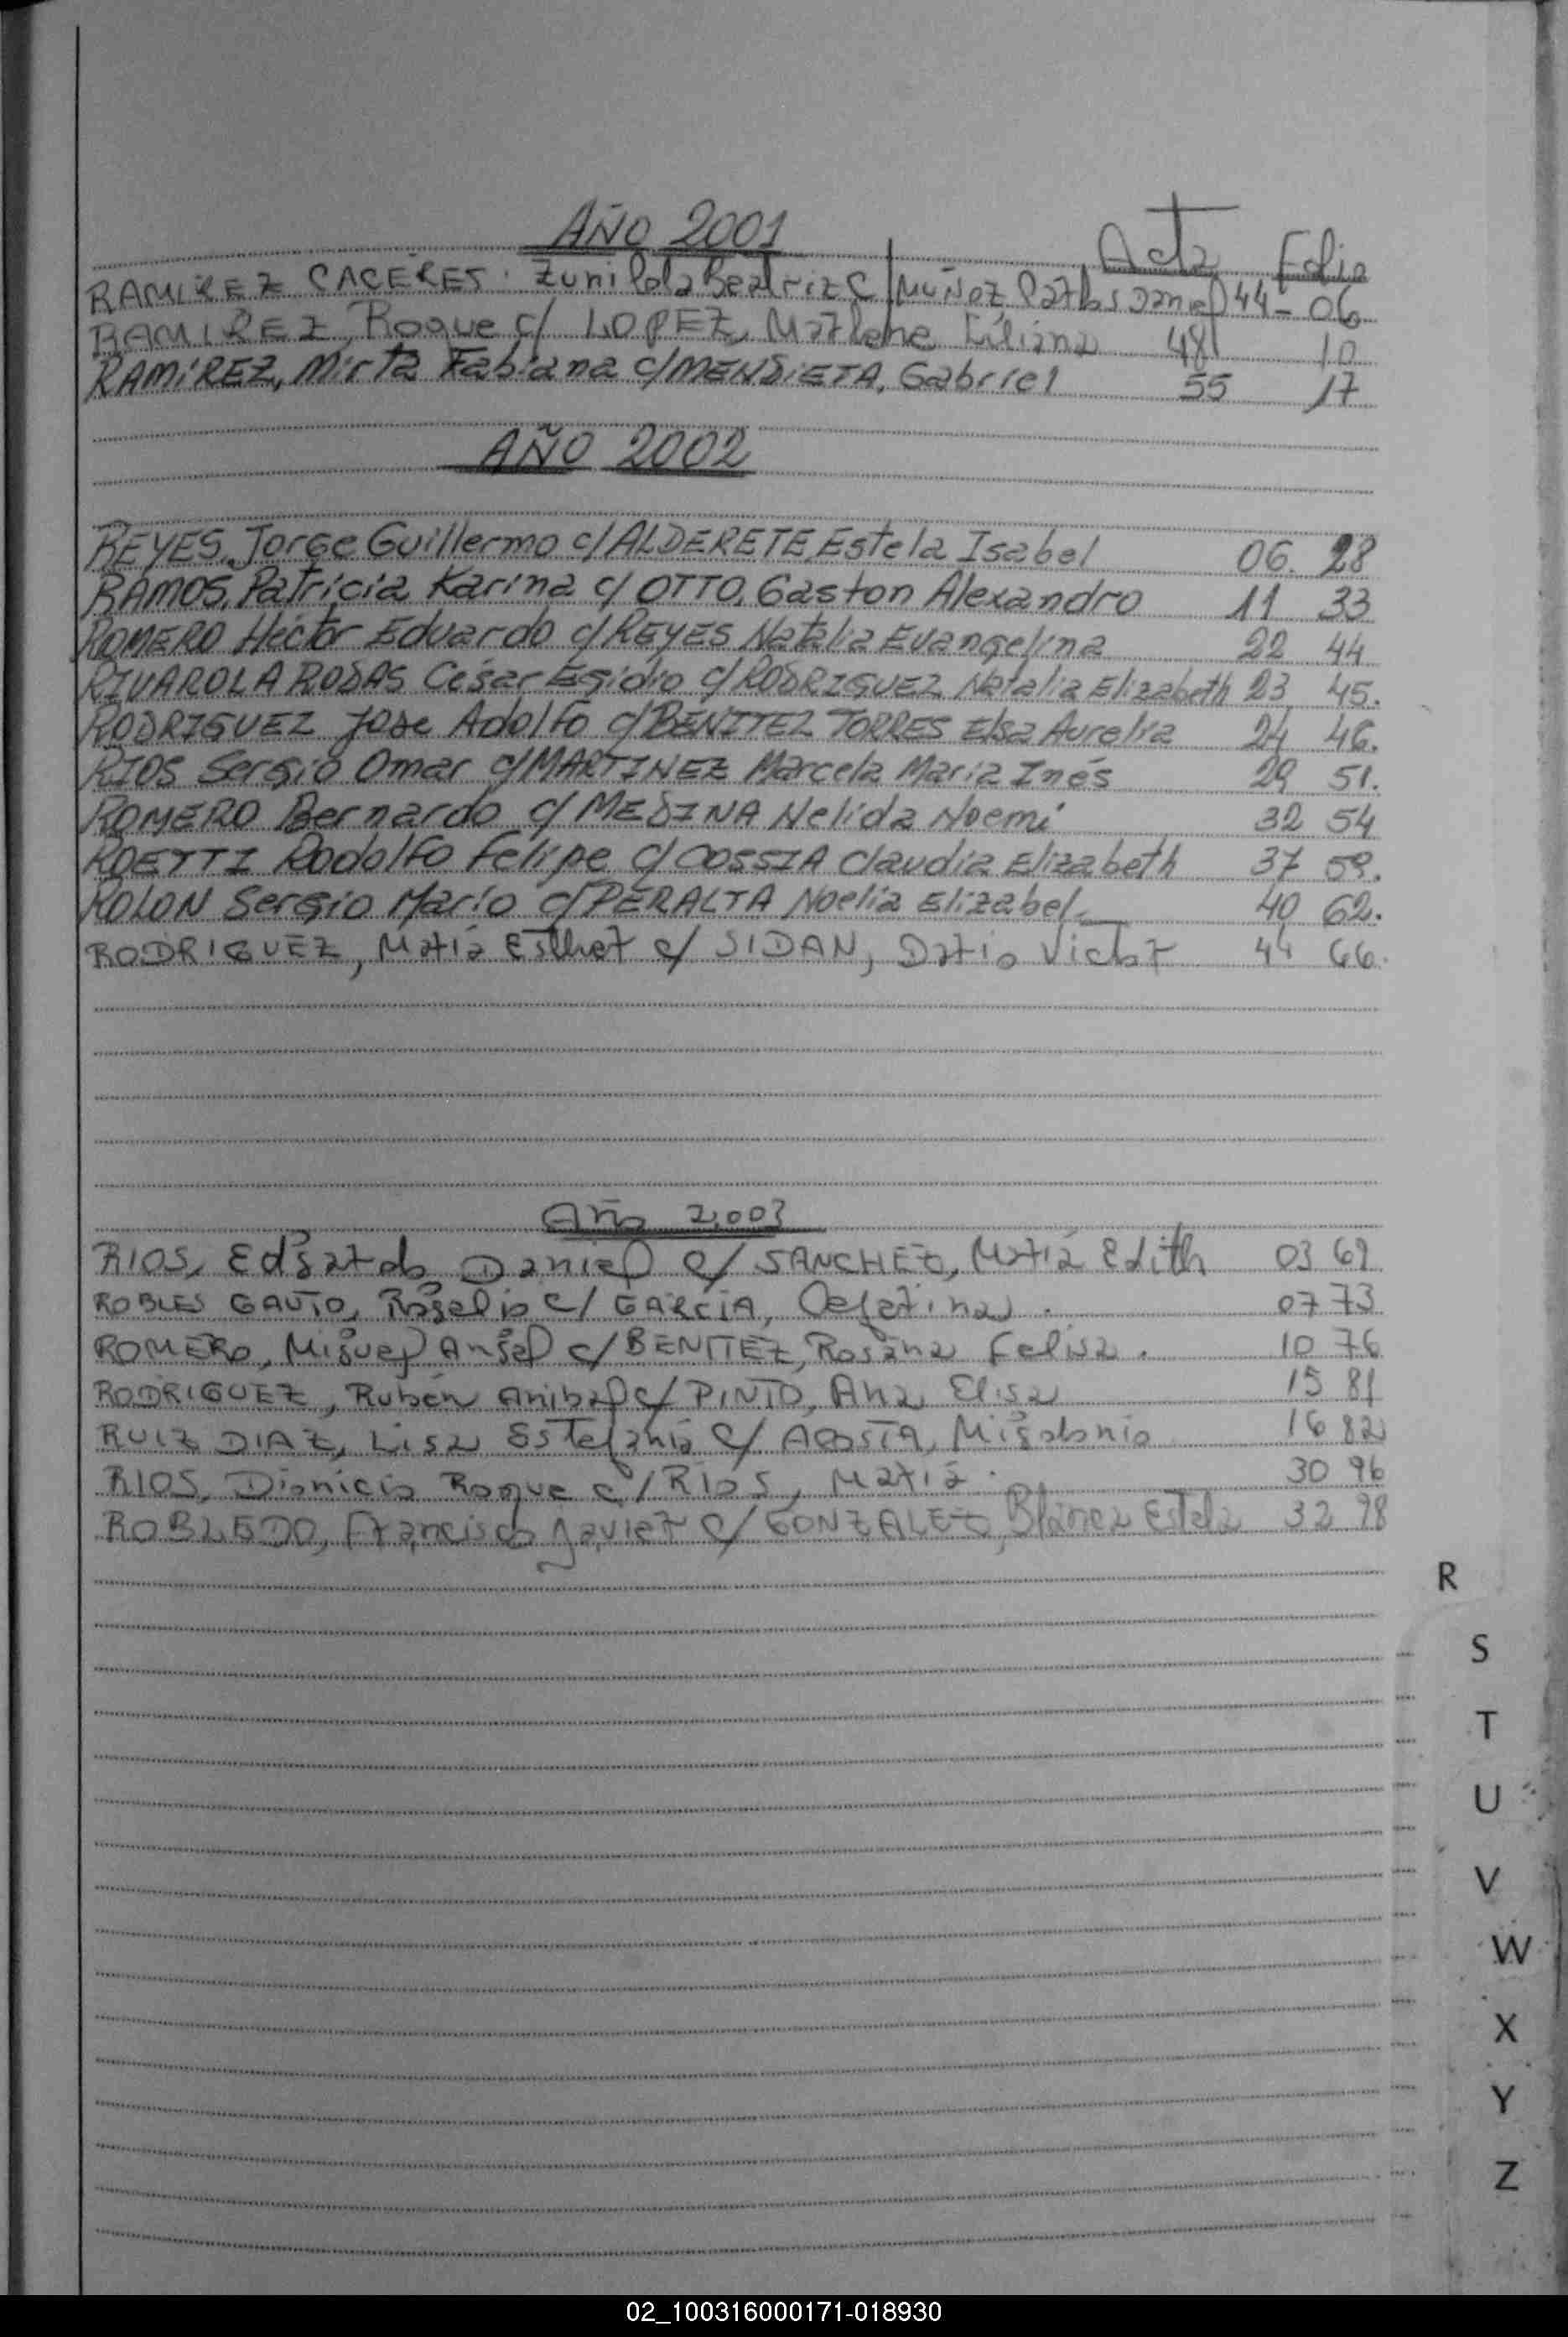 AÑO 2001 Acta Folio
RAMIREZ CACERES. Zunilda Beatriz C/ MUÑOZ Carlos Daniel 44- 06
RAMIREZ, Roque c/ LOPEZ, Marlene Liliana 48 10
RAMIREZ, Mirta Fabiana c/ MENDIETA, Gabriel 55 17
AÑO 2002
REYES, Jorge Guillermo c/ ALDERETE, Estela Isabel 06. 28
RAMOS, Patricia Karina c/ OTTO, Gaston Alexandro 11 33
ROMERO Héctor Eduardo c/ REYES Natalia Evangelina 22 44
RIVAROLA RODAS César Egidio c/ RODRIGUEZ Natalia Elizabeth 23 45.
RODRIGUEZ José Adolfo c/ BENITEZ TORRES Elsa Aurelia 24 46.
RIOS Sergio Omar c/ MARTINEZ Marcela María Inés 29 51.
ROMERO Bernardo c/ MEDINA Nelida Noemí 32 54
ROETTI Rodolfo Felipe c/ COSSIA Claudia Elizabeth 37 59.
ROLON Sergio Mario c/ PERALTA Noelia Elizabel 40 62.
RODRIGUEZ, María Esther c/ SIDAN, Dario Victor 44 66.
Año 2,003
RIOS, Edgardo Daniel c/ SANCHEZ, María Edith 03 69
ROBLES GAUTO, Rogelio c/ GARCIA, Ceferina . 07 73
ROMERO, Miguel Angel c/ BENITEZ, Rosana Felisa . 10 76
RODRIGUEZ, Rubén Anibal c/ PINTO, Ana Elisa 15 81
RUIZ DIAZ, Lisa Estefanía c/ ACOSTA, Migdonio 16 82
RIOS, Dionicio Roque c/ RIOS, María . 30 96
ROBLEDO, Francisco Javier c/ GONZALEZ, Blanca Estela 32 98
R
S
T
U
V
W
X
Y
Z
02_100316000171-018930